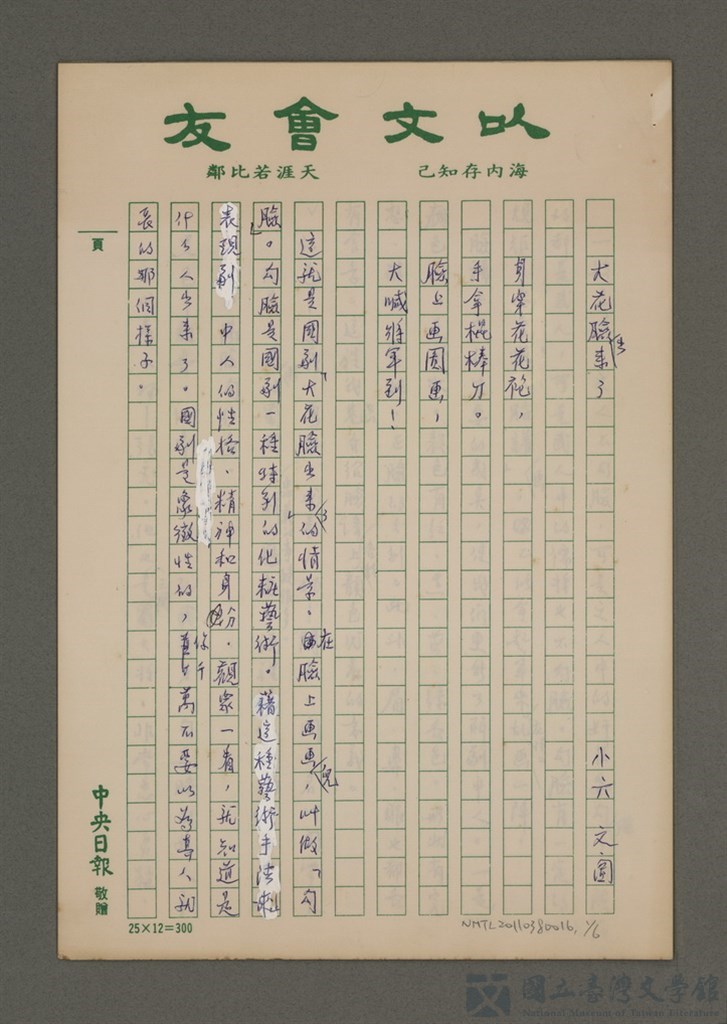 以文會友
海內存知己
天涯若比鄰
大花臉出來了
小六 文圖
身穿花花袍，
手拿棍棒刀。
臉上画圖画，
大喊將軍到！
這就是國劇「大花臉出來了」的情景。在臉上画画兒，叫做「勾
臉」。勾臉是國劇一種特別的化粧藝術。藉這種藝術手法來
表現劇中人的性格、精神和身份。觀眾一看，就知道是
什么人出來了。國劇是象徵性的，你千萬不要以為真人就
長的那個樣子。
頁
中央日報 敬贈
25×12=300
NMTL20110380016, 1/6
國立臺灣文學館
National Museum of Taiwan Literature